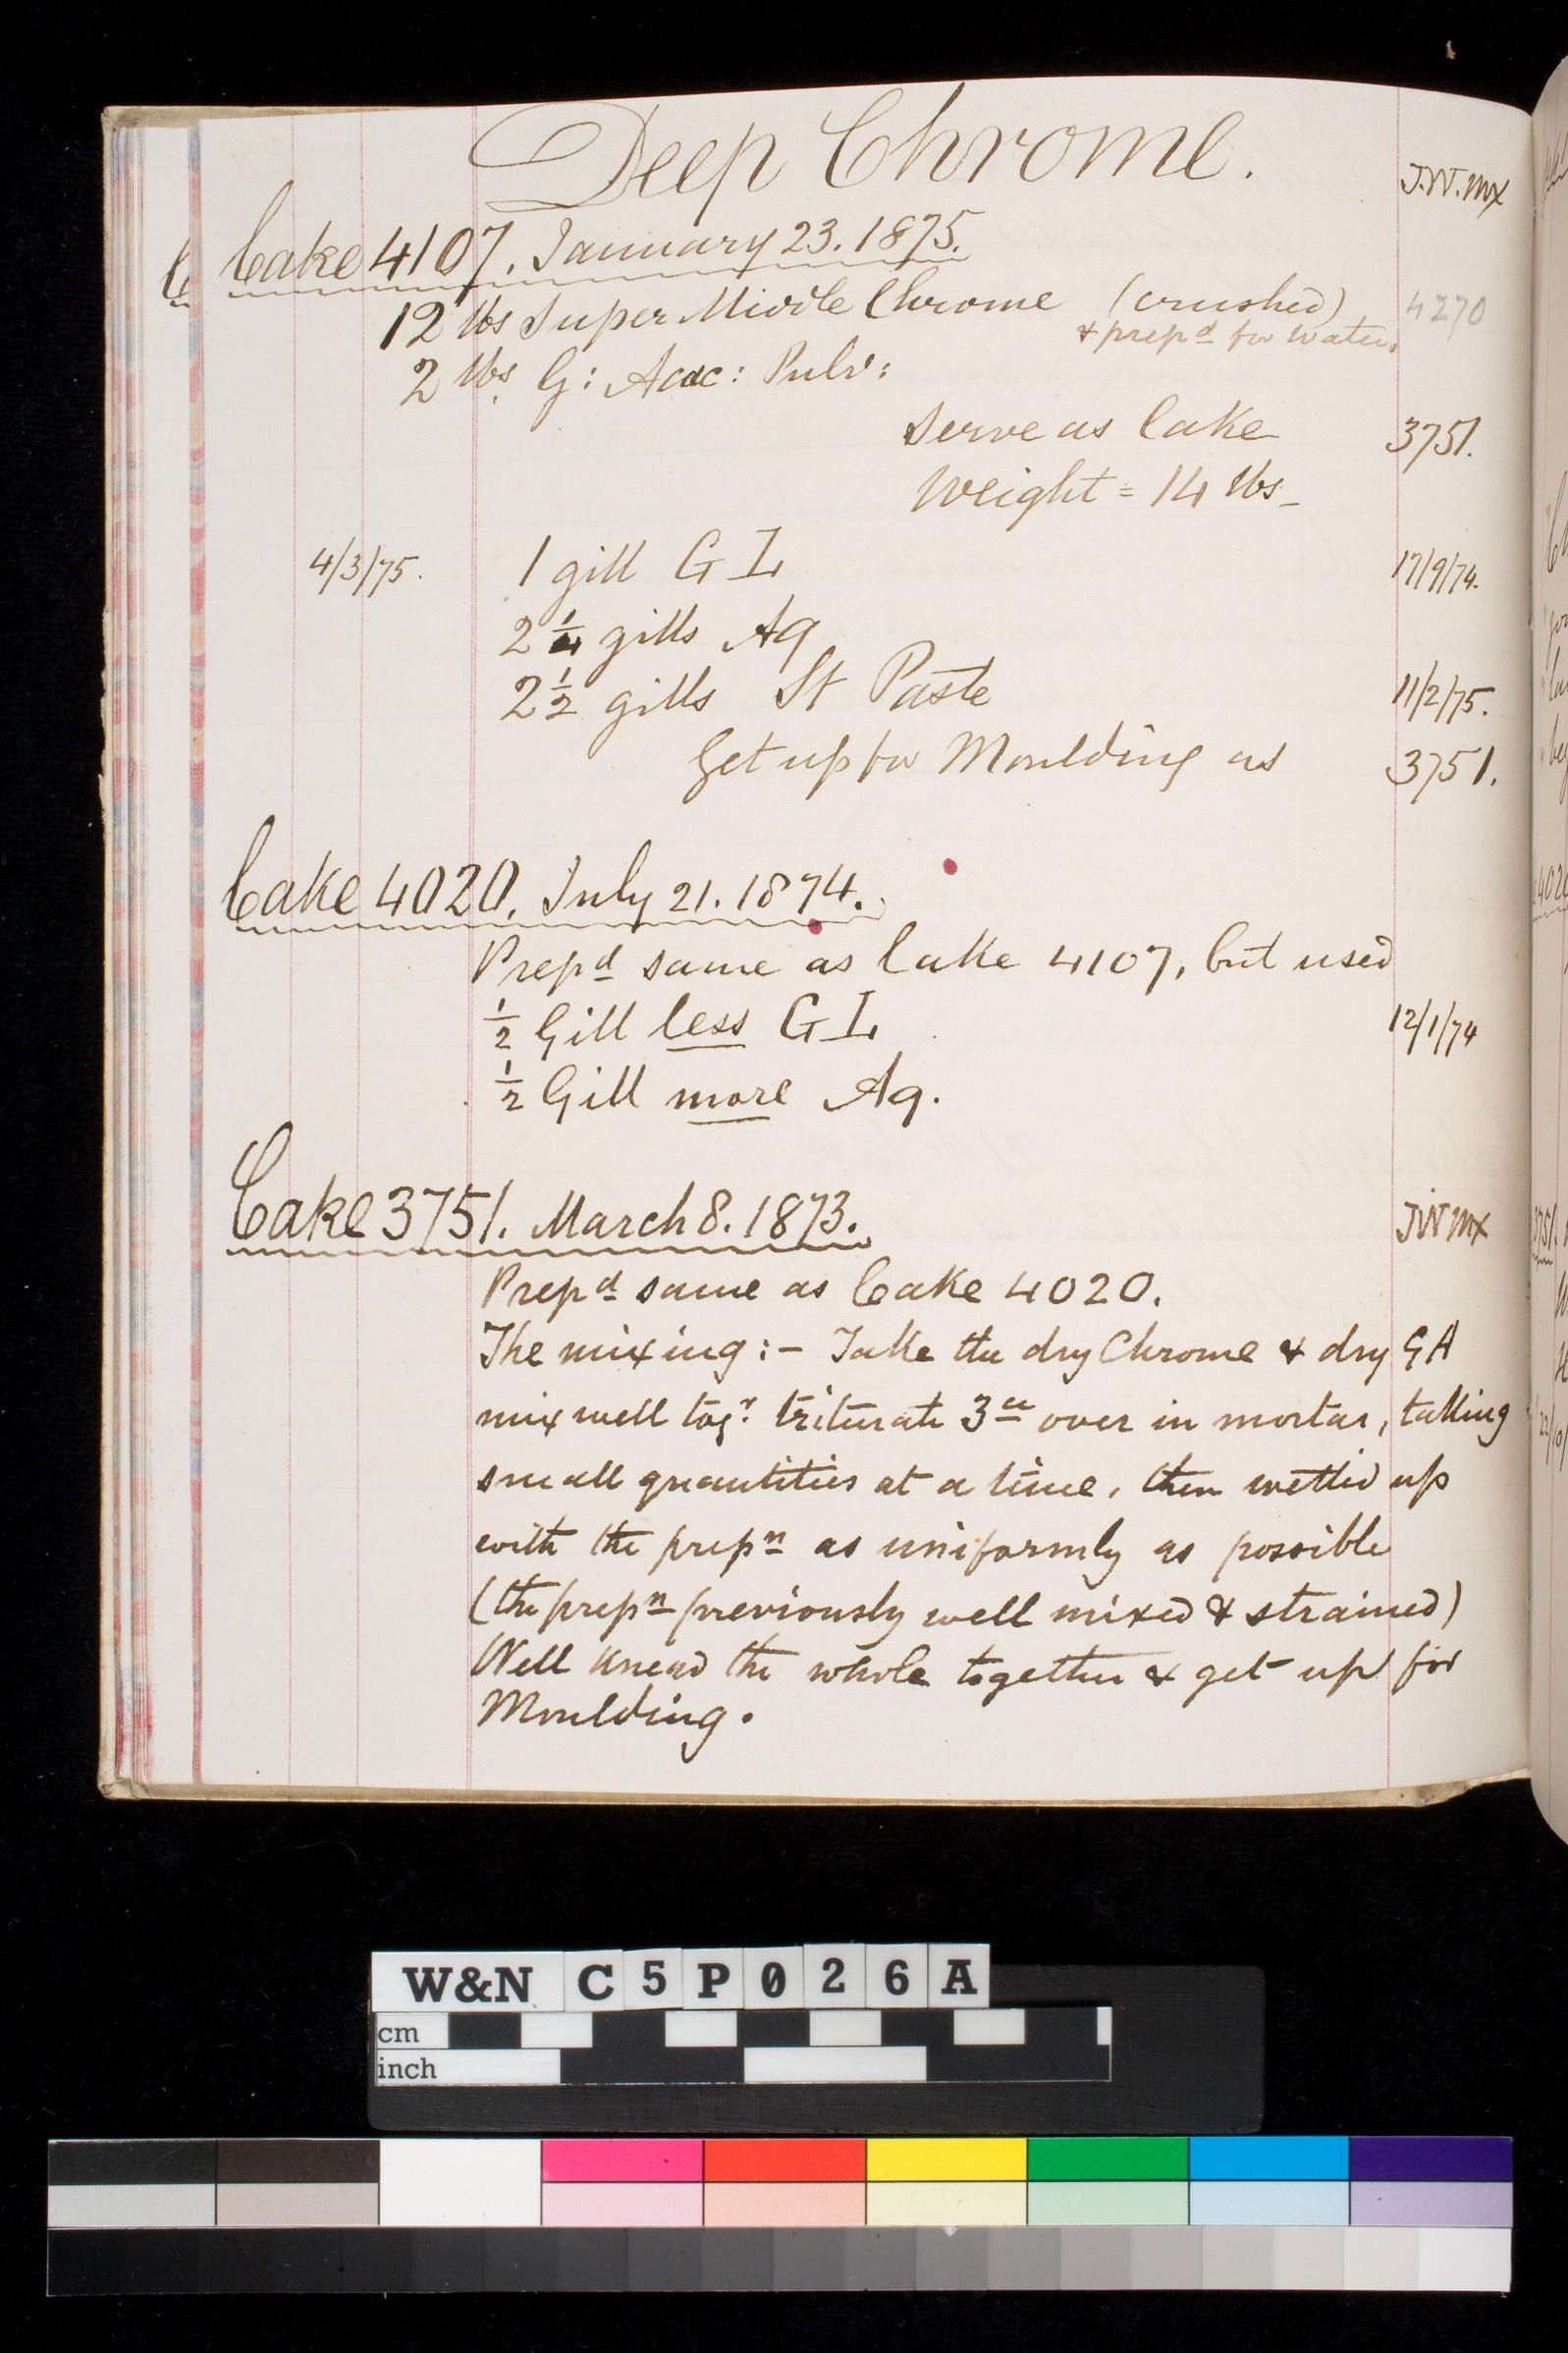 Deep Chrome.
J.W. mx
Cake 4107. January 23. 1875.
12 lbs Super Middle Chrome (crushed) 4270
& prepd for water.
2 lbs. G: Acac: Pulv:
Serve as Cake 3751.
Weight = 14 lbs
4/3/75. 1 gill G L 17/9/74.
2 1/4 gills Aq
2 1/2 gills St Paste 11/2/75.
Get up for Moulding as 3751.
Cake 4020. July 21. 1874.
Prepd same as Cake 4107, but used
1/2 Gill less G L 12/1/74
1/2 Gill more Aq.
Cake 3751. March 8. 1873. JW mx
Prepd same as Cake 4020.
The mixing :- Take the dry Chrome & dry G A
mix well togr. triturate 3ce over in mortar, taking
small quantities at a time, then wetted up
with the prepn as uniformly as possible
(the prepn previously well mixed & strained)
Well knead the whole together & get up for
Moulding.
W&N C5P026A
cm
inch